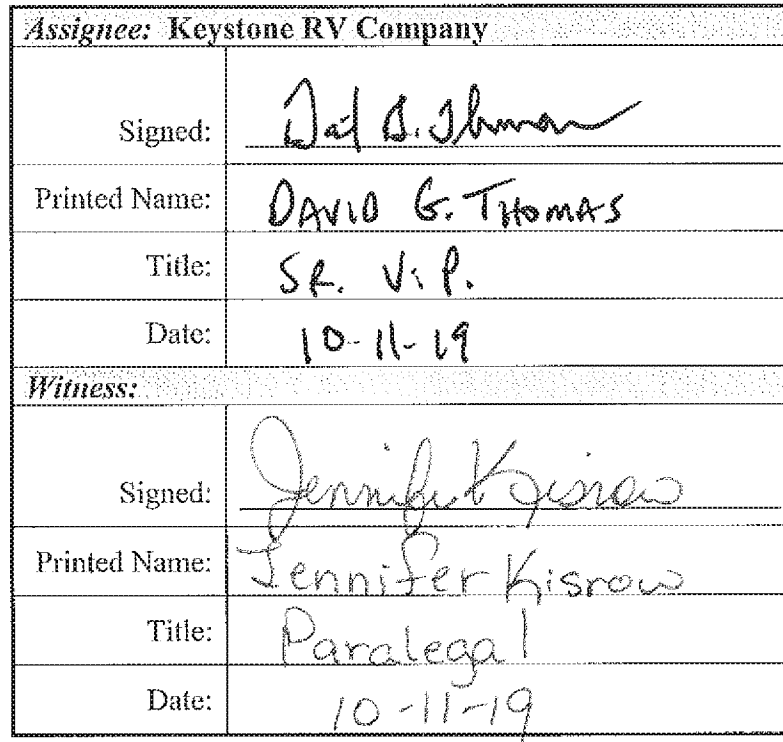 Assignee: Keystone RV Company
Signed: David G. Thomas
Printed Name: DAVID G. THOMAS
Title: SR. V.P.
Date: 10-11-19
Witness:
Signed: Jennifer Kisrow
Printed Name: Jennifer Kisrow
Title: Paralegal
Date: 10-11-19